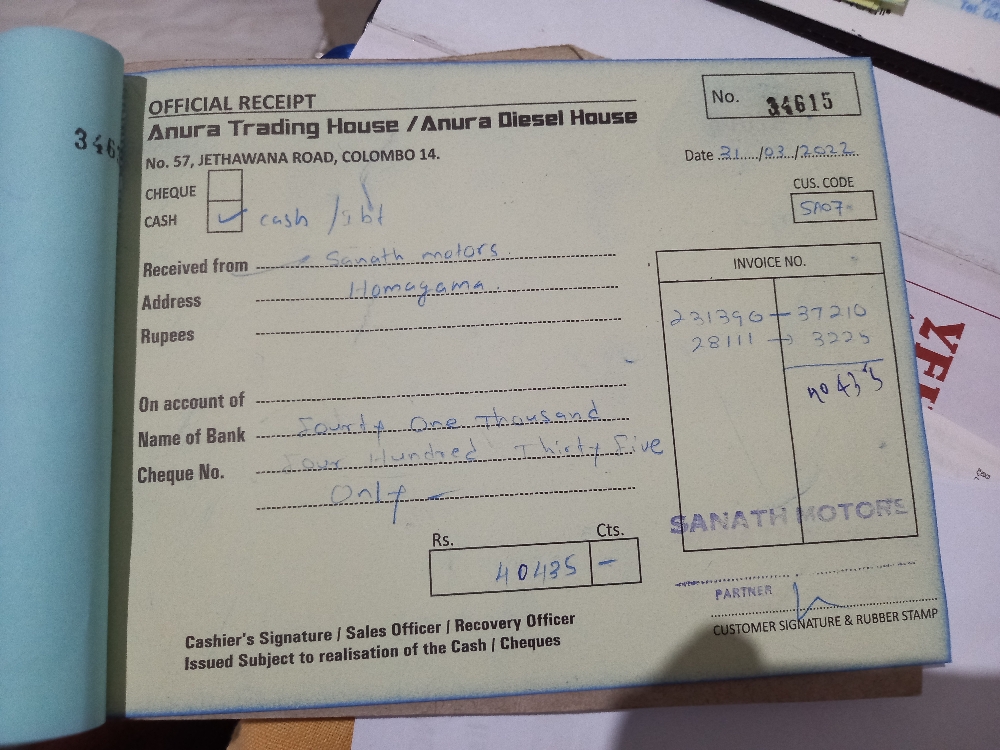 OFFICIAL RECEIPT
Anura Trading House / Anura Diesel House
No. 57, JETHAWANA ROAD, COLOMBO 14.
No. 34615
Date 31/03/2022
CUS. CODE
SA07
CHEQUE
CASH ✓ cash /
Received from Sanath motors.
Address Homagama.
Rupees
On account of
Name of Bank Fourty One Thousand
Cheque No. Four Hundred Thirty Five
Only -
INVOICE NO.
231390 - 37210
28111 → 3225
SANATH MOTORS
PARTNER
CUSTOMER SIGNATURE & RUBBER STAMP
Rs. Cts.
40435 -
Cashier's Signature / Sales Officer / Recovery Officer
Issued Subject to realisation of the Cash / Cheques